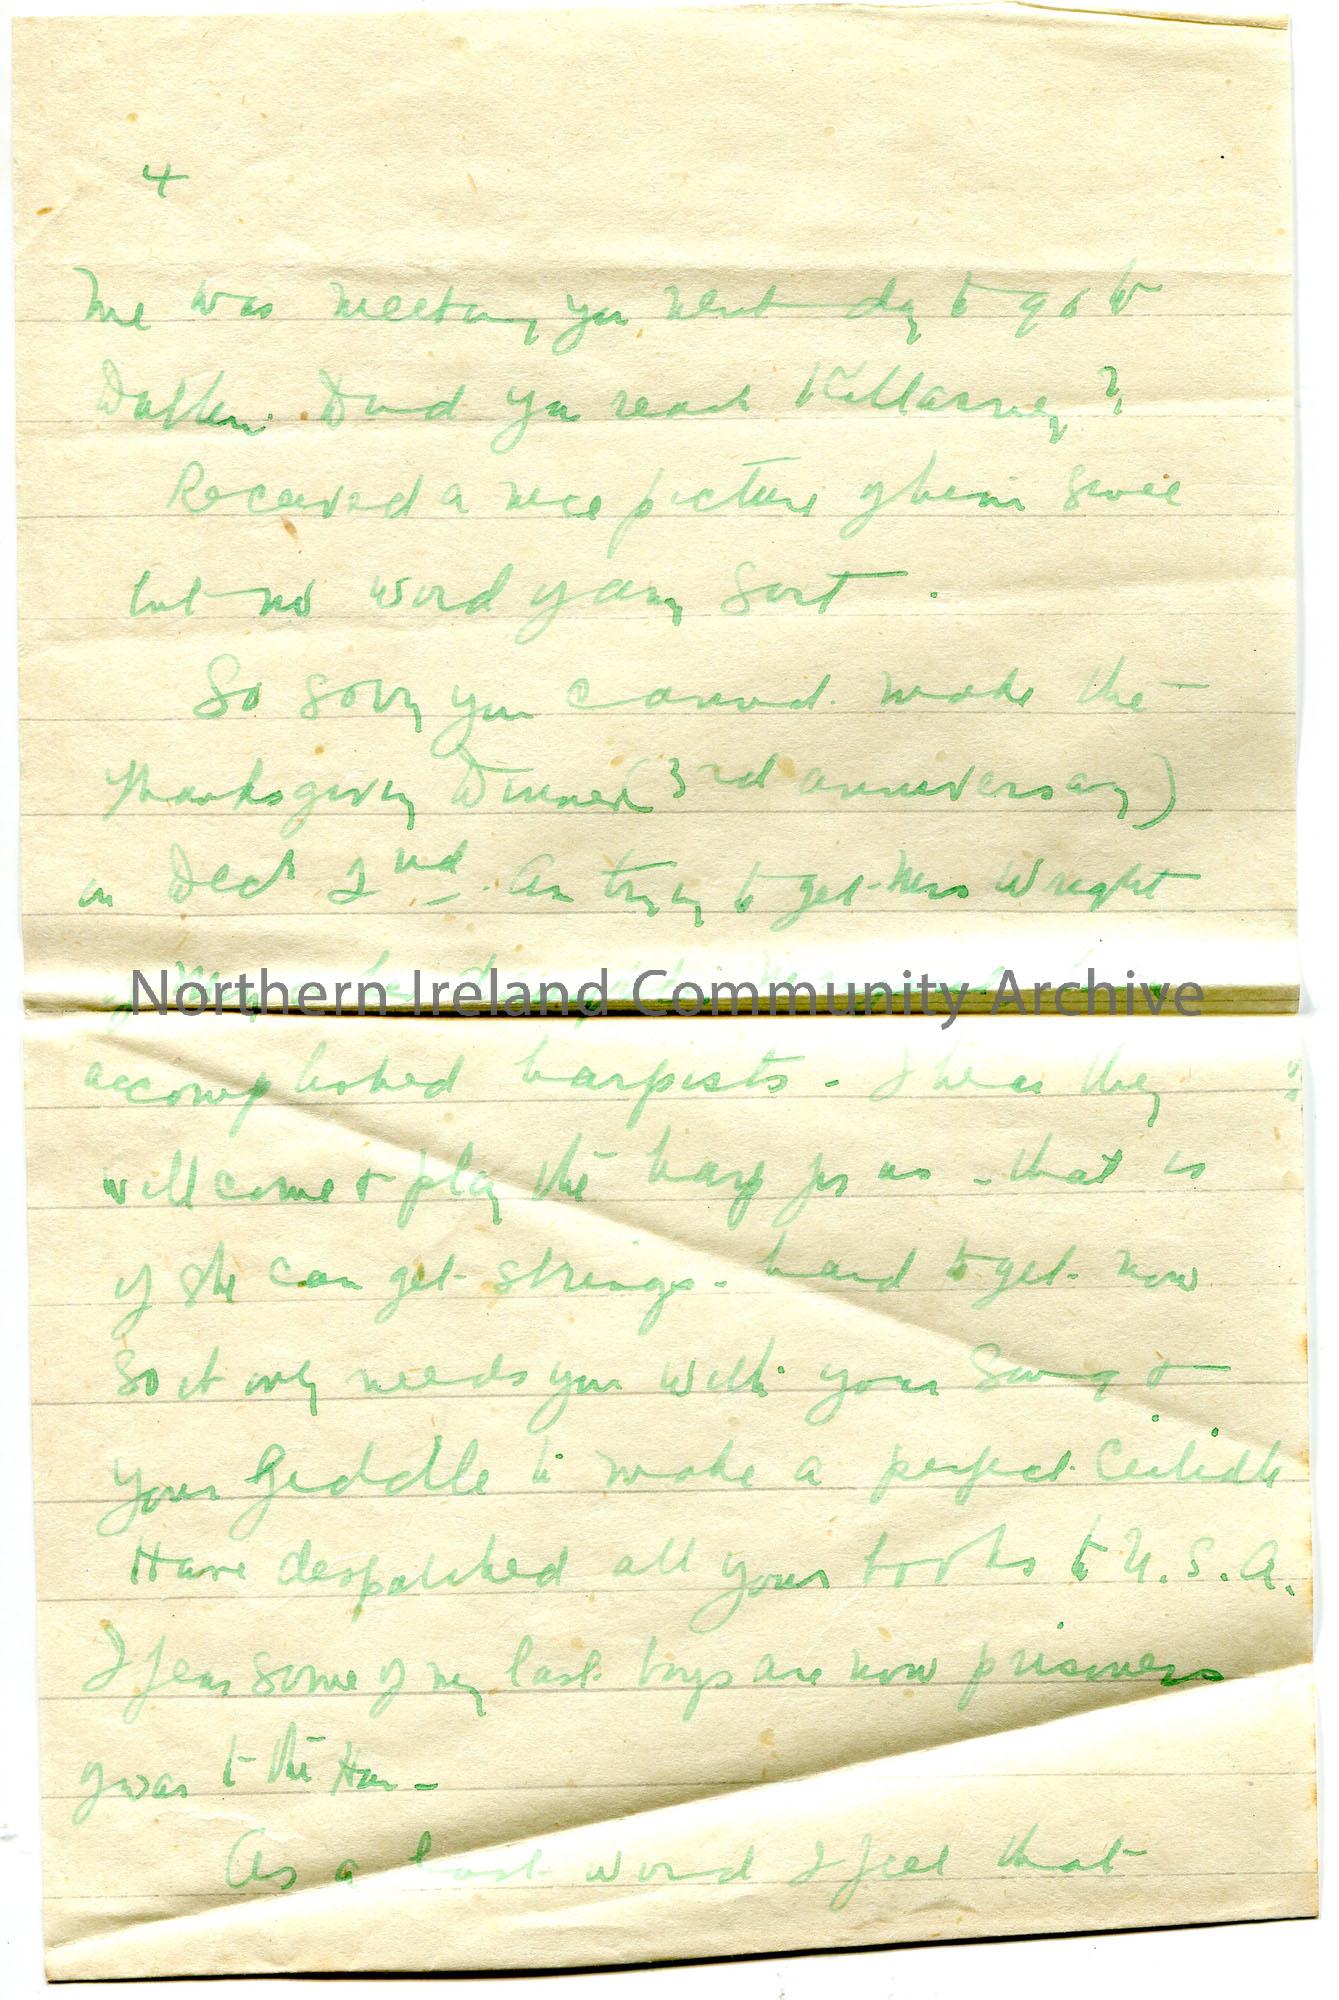 4
me was meeting you next day to go to
Dublin. Did you reach Killarney?
Received a nice picture of him since
but no word of any sort.
So sorry you cannot make the
Thanksgiving Dinner (3rd anniversary)
on Dec 2nd. Am trying to get Mrs Wright
Northern Ireland Community Archive
accomplished harpists - I hear they
will come & play the harp for us - that is
if she can get strings - hard to get now
So it only needs you with your Song &
your Fiddle to make a perfect Ceilidh
Have despatched all your books to U.S.A.
I fear some of my last boys are now prisoners
of war to the Hun -
As a last word I feel that